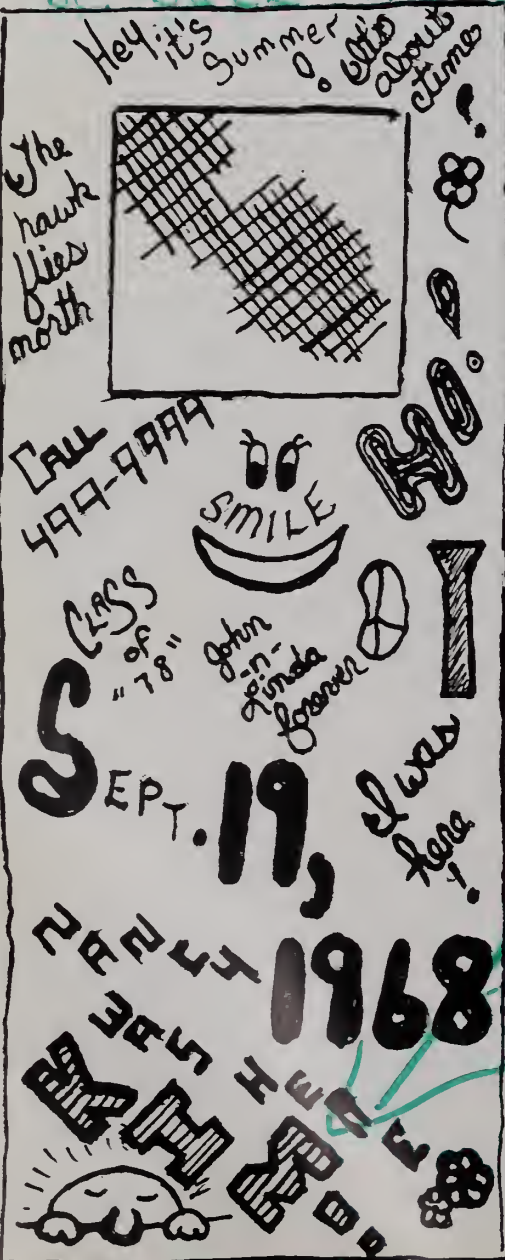 Hey, it's Summer!
It's about time!
The
hawk
flies
north
HI!
CALL
499-9999
SMILE
CLASS
of
"78"
John
-n-
Linda
forever
I was
here!
SEPT. 19,
1968
NANCY
WAS HERE
KIM